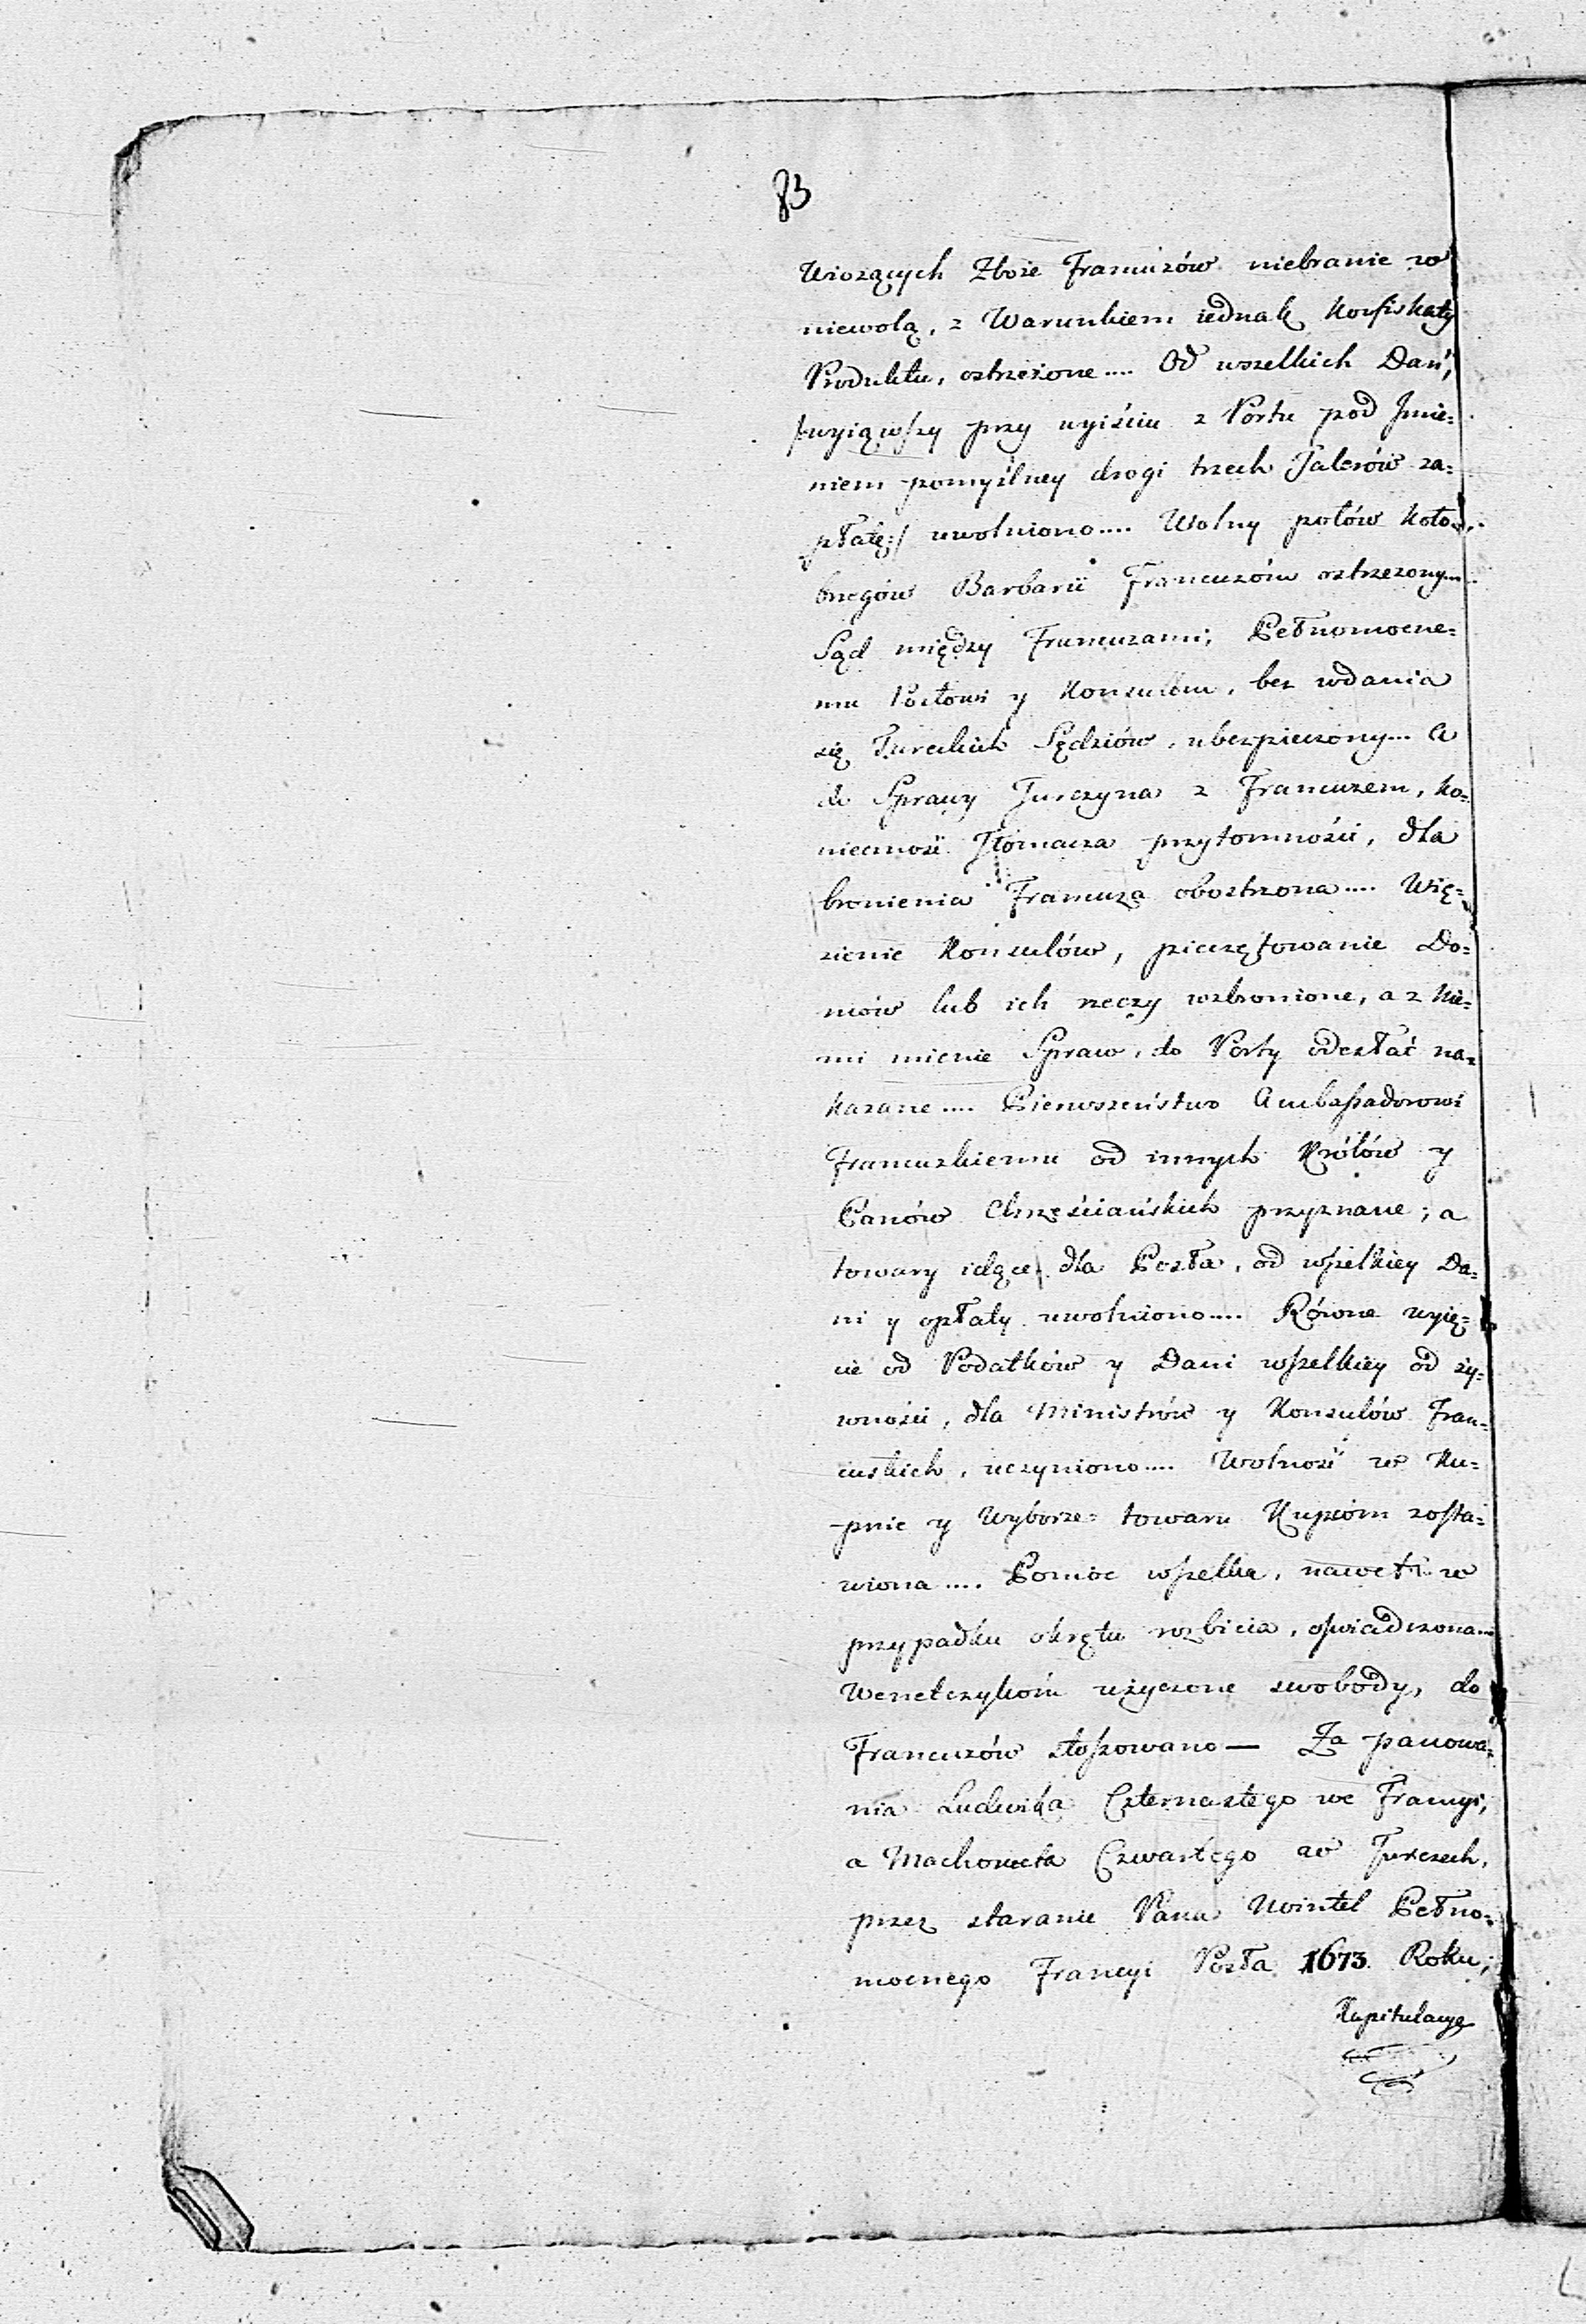 83
Wiozących Zboże Francuzów niebranie w
niewolą, z Warunkiem iednak Konfiskaty
Produktu, ostrzeżone.... Od wszelkich Dań,
/:wyiąwszy przy wyiściu z Portu pod Jmie=
niem pomyślney drogi trzech Talerów za=
płatę:/ uwolniono.... Wolny połów koło
brzegów Barbarii Francuzóm ostrzeżony...
Sąd między Francuzami, Pełnomocne=
mu Posłowi y Konsulom, bez wdania
się Tureckich Sędziów, ubezpieczony... a
do Sprawy Turczyna z Francuzem, ko=
nieczność Tłomacza przytomności, dla
bronienia Francuza obostrzona.... Wię=
zienie Konsulów, pieczętowanie Do=
mów lub ich rzeczy wzbronione, a z Nie=
mi mienie Spraw, do Porty odesłać na=
kazane.... Pierwszeństwo Ambassadorowi
Francuzkiemu od innych Królów y
Panów Chrześciańskich przyznane; a
towary idące dla Posła, od wszelkiey Da=
ni y opłaty uwolniono.... Równe wyię=
cie od Podatków y Dani wszelkiey od ży=
wności, dla Ministrów y Konsulów Fran=
cuskich, uczyniono.... Wolność w Ku=
pnie y Wyborze= towaru Kupcóm zosta=
wiona.... Pomoc wszelka, nawet w
przypadku okrętu rozbicia, oświadczona...
Wenetczykóm użyczone swobody, do
Francuzów stosowano— Za panowa=
nia Ludwika Czternastego we Francyi,
a Machometa Czwartego w Turczech,
przez staranie Pana Nointel Pełno=
mocnego Francyi Posła 1673 Roku,
Kapitulacye